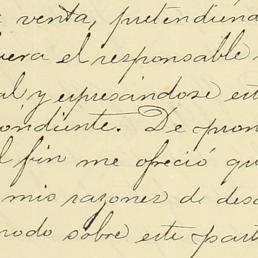 venta, pretendiéna
era el responsable
al y espresándose est
ondiente. De pron
l fin me ofreció qu
mis razones de desc
modo sobre este part